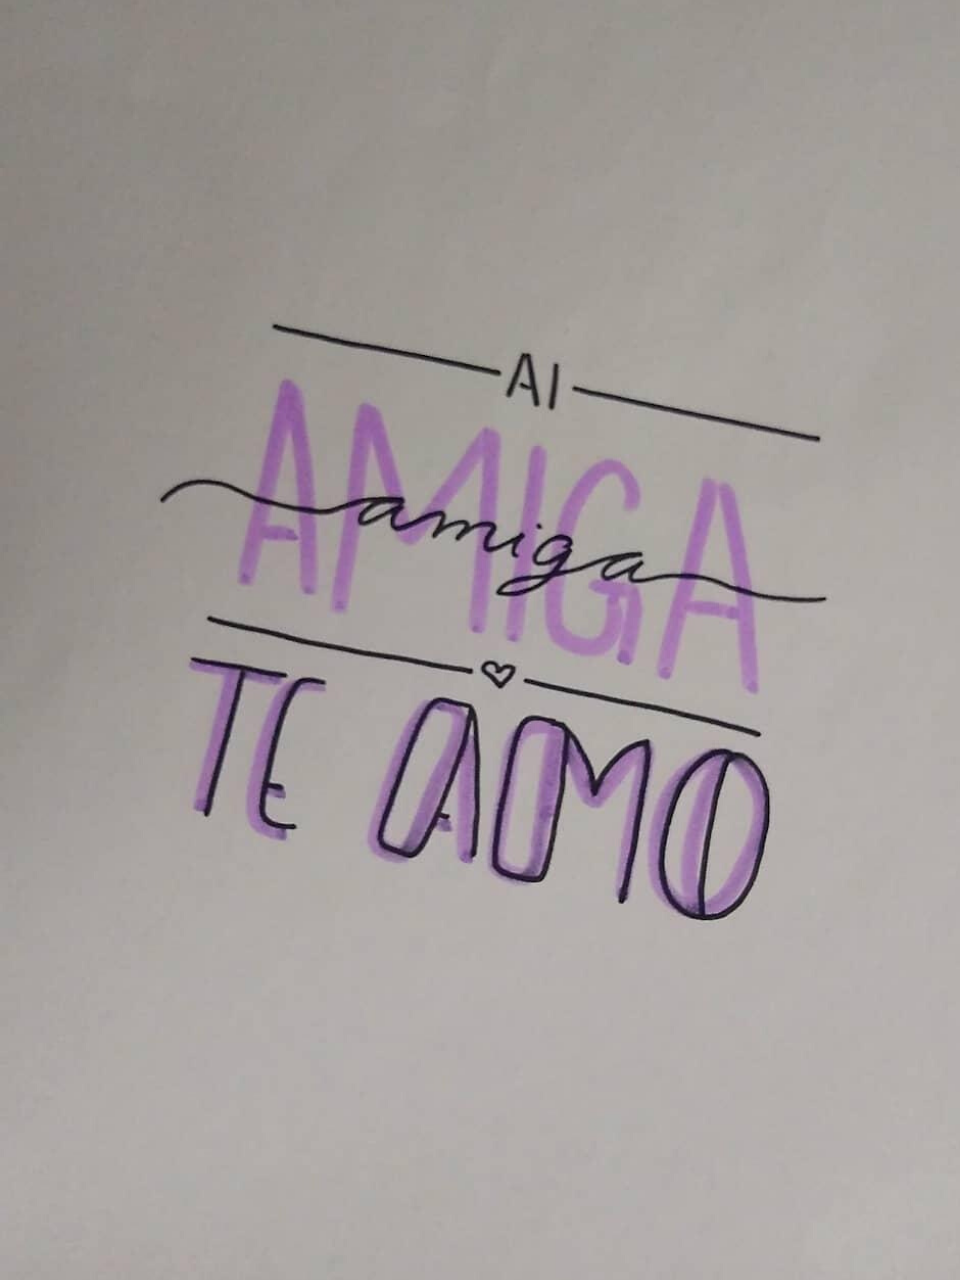 AI
AMIGA
amiga
TE AMO